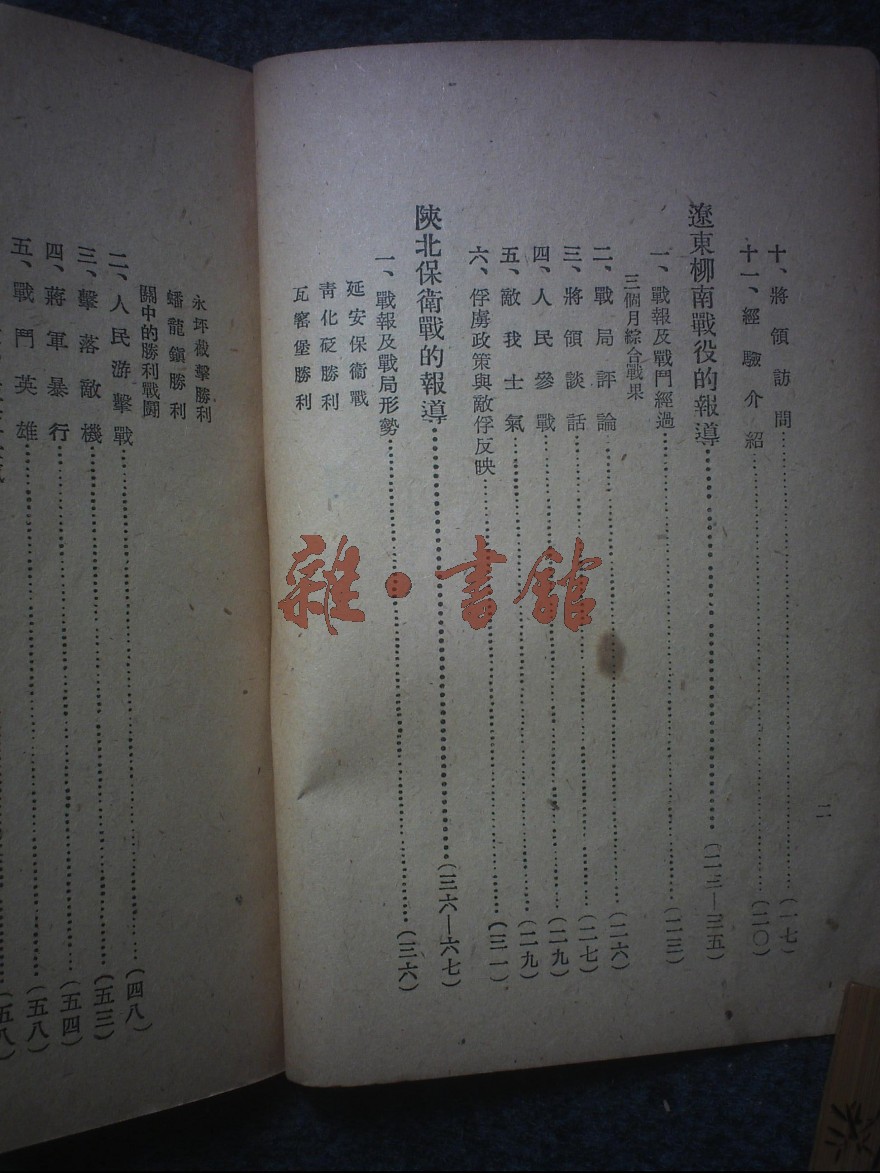 二
十、將領訪問……(一七)
十一、經驗介紹……(二〇)
遼東柳南戰役的報導……(二三—三五)
一、戰報及戰鬥經過……(二三)
三個月綜合戰果
二、戰局評論……(二六)
三、將領談話……(二七)
四、人民參戰……(二九)
五、敵我士氣……(二九)
六、俘虜政策與敵俘反映……(三一)
陝北保衛戰的報導……(三六—六七)
一、戰報及戰局形勢……(三六)
延安保衛戰
青化砭勝利
瓦窰堡勝利
永坪截擊勝利
蟠龍鎮勝利
關中的勝利戰鬪
二、人民游擊戰……(四八)
三、擊落敵機……(五三)
四、蔣軍暴行……(五四)
五、戰鬥英雄……(五八)
雜·書館